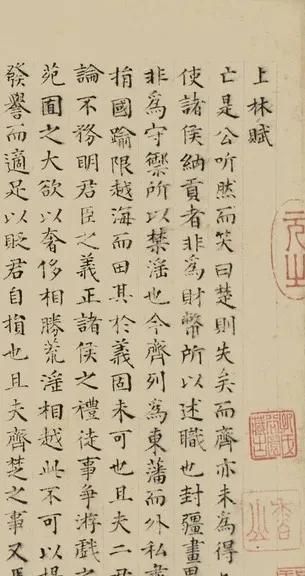 上林賦
亡是公听然而笑曰楚則失矣而齊亦未為得
使諸侯納貢者非為財幣所以述職也封疆畫
非為守禦所以禁淫也今齊列為東藩而外私肅
捐國踰限越海而田其於義固未可也且夫二君
論不務明君臣之義正諸侯之禮徒事爭游戲之
苑囿之大欲以奢侈相勝荒淫相越此不可以揚
發譽而適足以貶君自損也且夫齊楚之事又焉